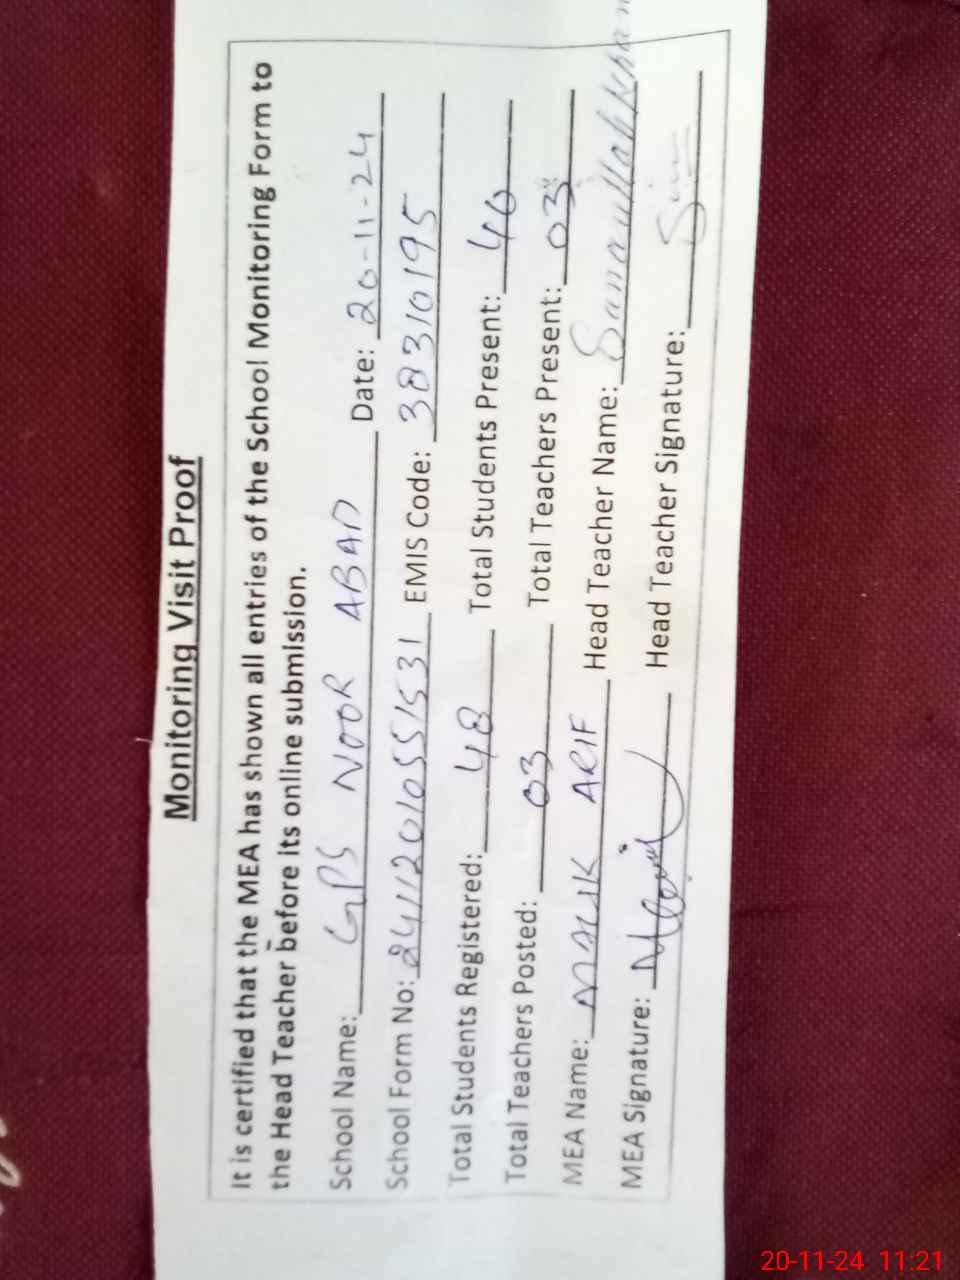 Monitoring Visit Proof
It is certified that the MEA has shown all entries of the School Monitoring Form to
the Head Teacher before its online submission.
School Name: GPS NOOR ABAD Date: 20-11-24
School Form No: 241120105515 31 EMIS Code: 38310195
Total Students Registered: 48 Total Students Present: 40
Total Teachers Posted: 03 Total Teachers Present: 03
MEA Name: MALIK ARIF Head Teacher Name: Sanaullah Khan
MEA Signature: Head Teacher Signature:
20-11-24 11:21